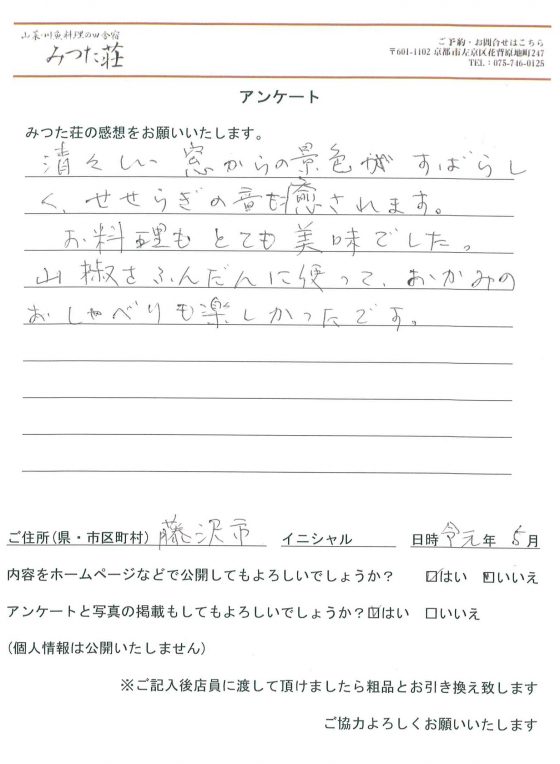 山菜・川魚料理の田舎宿
みつた荘
ご予約・お問合せはこちら
〒601-1102 京都市左京区花背原地町247
TEL：075-746-0125
アンケート
みつた荘の感想をお願いいたします。
清々しい窓からの景色がすばらし
く、せせらぎの音も癒されます。
お料理もとても美味でした。
山椒をふんだんに使って、おかみの
おしゃべりも楽しかったです。
ご住所(県・市区町村) 藤沢市 イニシャル 日時 令元年 5月
内容をホームページなどで公開してもよろしいでしょうか？ ☑はい ☑いいえ
アンケートと写真の掲載もしてもよろしいでしょうか？☑はい ☐いいえ
(個人情報は公開いたしません)
※ご記入後店員に渡して頂けましたら粗品とお引き換え致します
ご協力よろしくお願いいたします